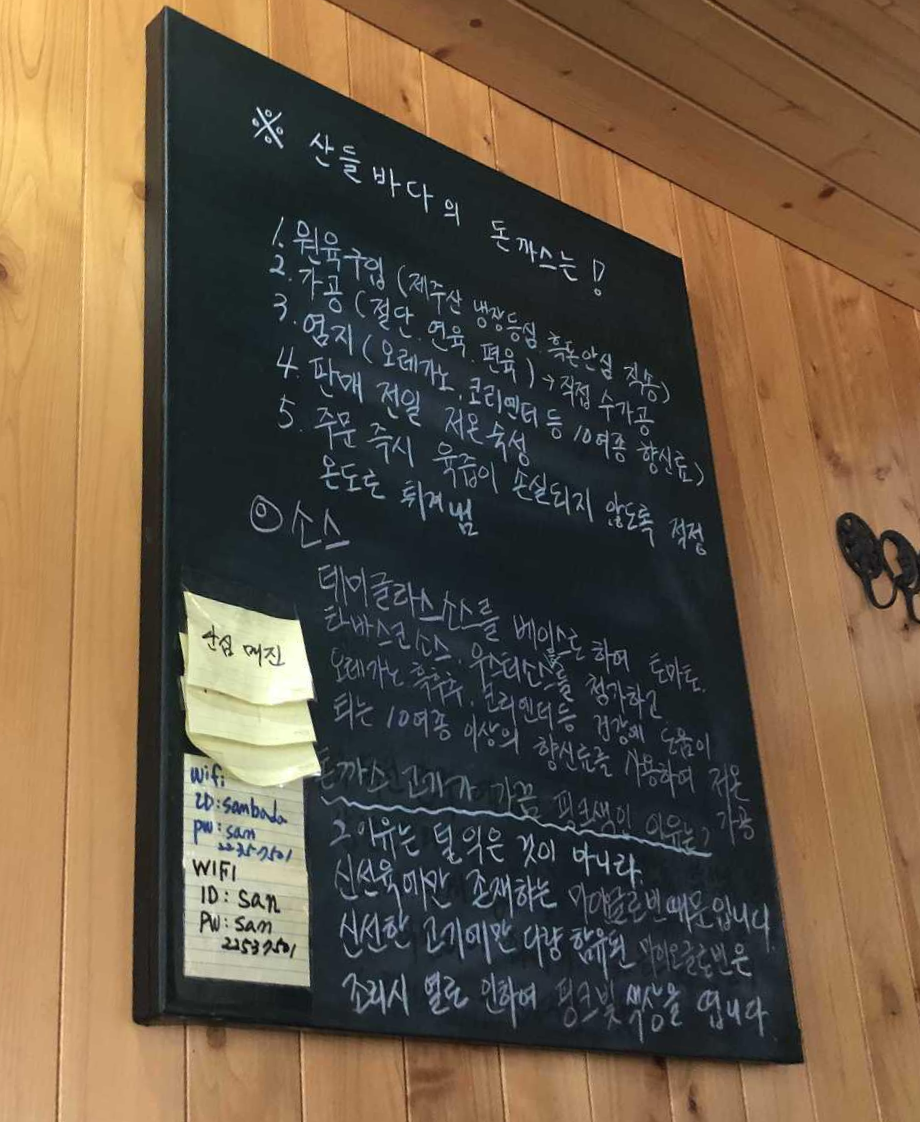 ※ 산들바다의 돈까스는!
1. 원육구입 (제주산 냉장등심. 흑돈안심 직송)
2. 가공 (절단. 연육. 편육) → 직접 수가공
3. 염지 (오레가노. 코리엔더 등 10여종 향신료)
4. 판매 전일 저온숙성
5. 주문 즉시 육즙이 손실되지 않도록 적정
온도로 튀겨냄
◎ 소스
데미글라스소스를 베이스로하여 토마토.
타바스코소스. 우스터소스등을 첨가하고
오레가노. 흑후추. 코리엔더등 건강에 도움이
되는 10여종 이상의 향신료를 사용하여 저온
가공
돈까스 고기가 가끔 핑크색인 이유는?
그 이유는 덜 익은 것이 아니라.
신선육에만 존재하는 때문입니다
신선한 고기에만 다량 함유된 마이오글로빈은
조리시 열로 인하여 핑크빛 색상을 띕니다
안심 매진
Wifi
ID: sambada
PW: san
22537501
WIFI
ID: san
PW: san
22537501